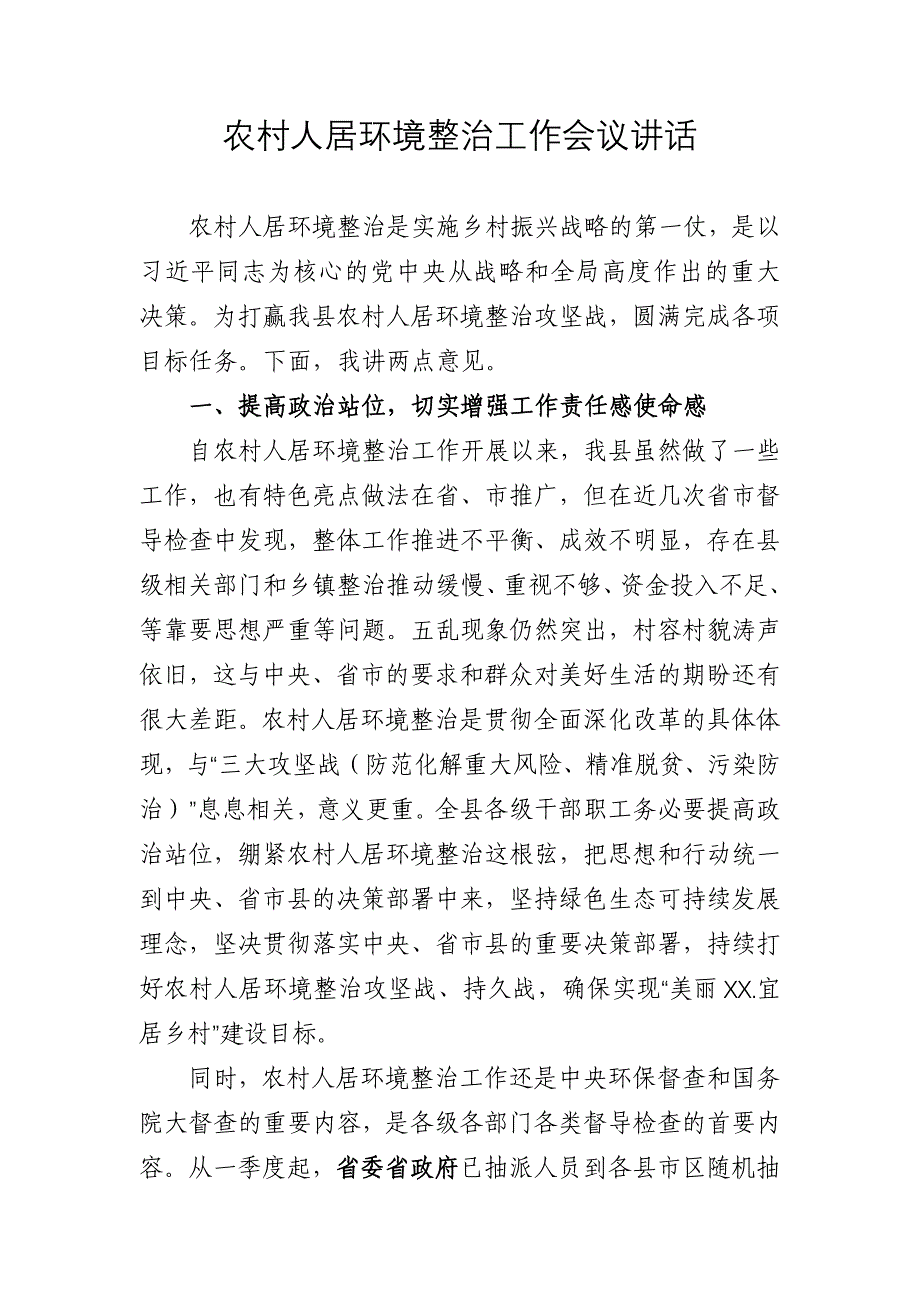 农村人居环境整治工作会议讲话
农村人居环境整治是实施乡村振兴战略的第一仗，是以
习近平同志为核心的党中央从战略和全局高度作出的重大
决策。为打赢我县农村人居环境整治攻坚战，圆满完成各项
目标任务。下面，我讲两点意见。
一、提高政治站位，切实增强工作责任感使命感
自农村人居环境整治工作开展以来，我县虽然做了一些
工作，也有特色亮点做法在省、市推广，但在近几次省市督
导检查中发现，整体工作推进不平衡、成效不明显，存在县
级相关部门和乡镇整治推动缓慢、重视不够、资金投入不足、
等靠要思想严重等问题。五乱现象仍然突出，村容村貌涛声
依旧，这与中央、省市的要求和群众对美好生活的期盼还有
很大差距。农村人居环境整治是贯彻全面深化改革的具体体
现，与“三大攻坚战（防范化解重大风险、精准脱贫、污染防
治）”息息相关，意义更重。全县各级干部职工务必要提高政
治站位，绷紧农村人居环境整治这根弦，把思想和行动统一
到中央、省市县的决策部署中来，坚持绿色生态可持续发展
理念，坚决贯彻落实中央、省市县的重要决策部署，持续打
好农村人居环境整治攻坚战、持久战，确保实现“美丽 XX.宜
居乡村”建设目标。
同时，农村人居环境整治工作还是中央环保督查和国务
院大督查的重要内容，是各级各部门各类督导检查的首要内
容。从一季度起，省委省政府已抽派人员到各县市区随机抽